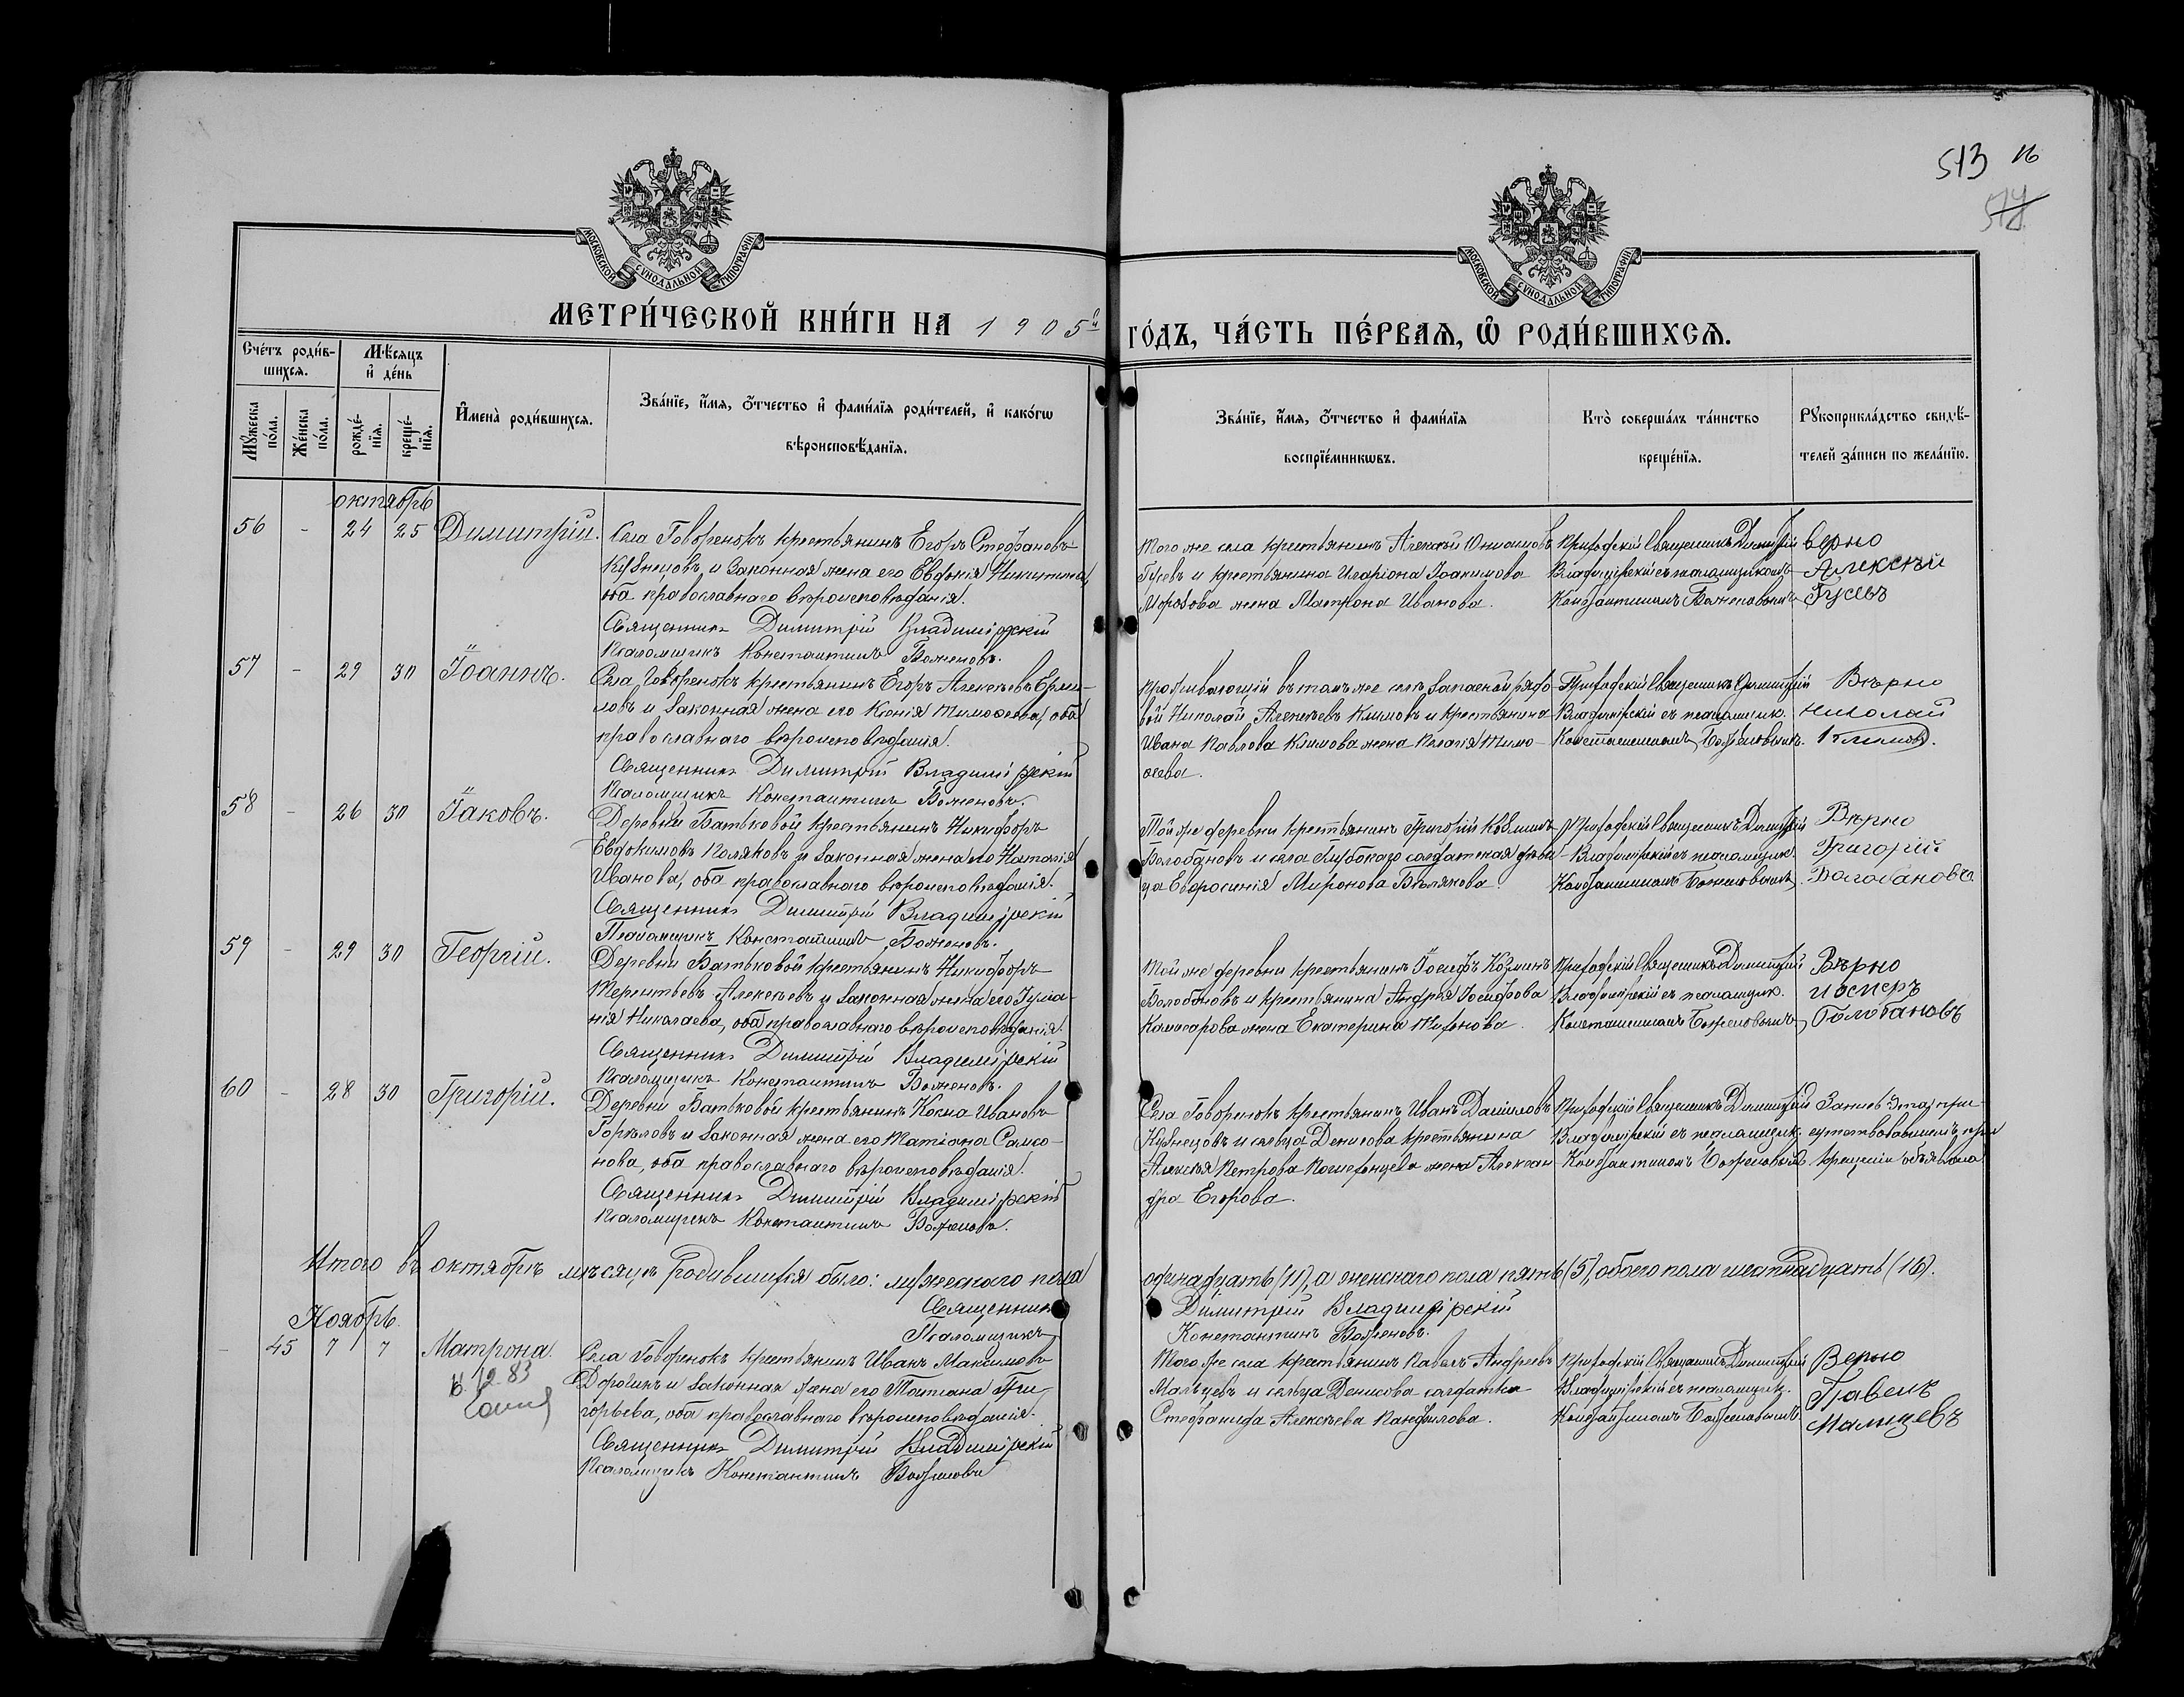 513 16
574
МОСКОВСКОЙ СѴНОДАЛЬНОЙ ТИПОГРАФІИ
МОСКОВСКОЙ СѴНОДАЛЬНОЙ ТИПОГРАФІИ
МЕТРИ́ЧЕСКОЙ КНИ́ГИ НА 1905й
ГО́ДЪ, ЧА́СТЬ ПЕ́РВАЯ, Ѡ҆ РОДИ́ВШИХСЯ.
Счетъ роди́в-
шихся.
Мѣсяцъ
и҆ де́нь
Мꙋжеска по́ла.
Же́нска по́ла.
рожде́-
нїя.
креще́-
нїя.
И҆мена̀ роди́вшихся.
Зва́нїе, и҆́мя, ѻ҆́тчество и҆ фами́лїя роди́телей, и҆ како́гѡ
вѣроисповѣ́данїя.
Зва́нїе, и҆́мя, ѻ҆́тчество и҆ фами́лїя
воспрїе́мникѡвъ.
Кто̀ соверша́лъ та́инство
креще́нїя.
Рꙋкоприкла́дство свидѣ́-
телей за́писи по жела́нїю.
октябрь
56 - 24 25 Димитрій.
Села Говоренокъ крестьянинъ Егоръ Стефановъ
Кузнецовъ и законная жена его Евдокія Никитина,
оба православнаго вѣроисповѣданія.
Священникъ Димитрій Владимірскій
Псаломщикъ Константинъ Боженовъ.
Того же села крестьянинъ Алексѣй
Гусевъ и крестьянина Иларіона Іоакимова
Морозова жена Матрона Иванова.
Приходскій Священникъ Димитрій
Владимірскій съ псаломщикомъ
Константиномъ Боженовымъ
верно
Алексѣй
Гусевъ
57 - 29 30 Іоаннъ.
Села Говоренокъ крестьянинъ Егоръ Алексѣевъ Ерми-
ловъ и законная жена его Ксенія Тимоѳеева, оба
православнаго вѣроисповѣданія.
Священникъ Димитрій Владимірскій
Псаломщикъ Константинъ Боженовъ.
Проживающій въ томъ же селѣ запасной рядо-
вой Николай Алексѣевъ Климовъ и крестьянина
Ивана Павлова Климова жена Пелагія Тимо-
ѳеева.
Приходскій Священникъ Димитрій
Владимірскій съ псаломщик.
Константиномъ Боженовымъ.
Вѣрно
Николай
Климовъ.
58 - 26 30 Іаковъ.
Деревни Батьковой крестьянинъ Никифоръ
Евдокимовъ Поляковъ и законная жена его Наталія
Иванова, оба православнаго вѣроисповѣданія.
Священникъ Димитрій Владимірскій
Псаломщикъ Константинъ Боженовъ.
Той же деревни крестьянинъ Григорій Козминъ
Болобановъ и села Глубокаго солдатская дѣви-
ца Евфросинія Миронова Бѣлякова.
Приходскій Священникъ Димитрій
Владимірскій съ псаломщик.
Константиномъ Боженовымъ.
Вѣрно
Григорій
59 - 29 30 Георгій.
Деревни Батьковой крестьянинъ Никифоръ
Терентьевъ Алексѣевъ и законная жена его Іулiа-
нія Николаева, оба православнаго вѣроисповѣданія.
Священникъ Димитрій Владимірскій
Псаломщикъ Константинъ Боженовъ.
Той же деревни крестьянинъ Іосифъ Козминъ
Болобановъ и крестьянина Андрея Іосифова
Комисарова жена Екатерина
Приходскій Священникъ Димитрій
Владимірскій съ псаломщик.
Константиномъ Боженовымъ
Вѣрно
60 - 28 30 Григорій.
Деревни Батьковой крестьянинъ Косма Ивановъ
Горѣловъ и законная жена его Татіана Самсо-
нова, оба православнаго вѣроисповѣданія.
Священникъ Димитрій Владимірскій
Псаломщикъ Константинъ Боженовъ.
Села Говоренокъ крестьянинъ Иванъ Даниловъ
Кузнецовъ и сельца Денисова крестьянина
Алексѣя Петрова жена Алексан-
дра Егорова.
Приходскій Священникъ Димитрій
Владимірскій съ псаломщик.
Константиномъ Боженовымъ.
Запись эта при-
сутствовавшемъ при
крещеніи объявлена
Итого въ октябрѣ мѣсяцѣ родившихся было: мужескаго пола
одинадцать (11), а женскаго пола пять (5), обоего пола шестнадцать (16).
Священникъ Димитрій Владимірскій
Псаломщикъ Константинъ Боженовъ.
Ноябрь.
- 45 7 7 Матрона.
12 83
Села Говоренокъ крестьянинъ Иванъ Максимовъ
Дорогинъ и законная жена его Татіана Гри-
горьева, оба православнаго вѣроисповѣданія.
Священникъ Димитрій Владимірскій
Псаломщикъ Константинъ Боженовъ
Того же села крестьянинъ Павелъ Андреевъ
Мальцевъ и сельца Денисова солдатка
Стефанида Алексѣева Панфилова.
Приходскій Священникъ Димитрій
Владимірскій съ псаломщик.
Константиномъ Боженовымъ
Верно
Павелъ
Малцевъ